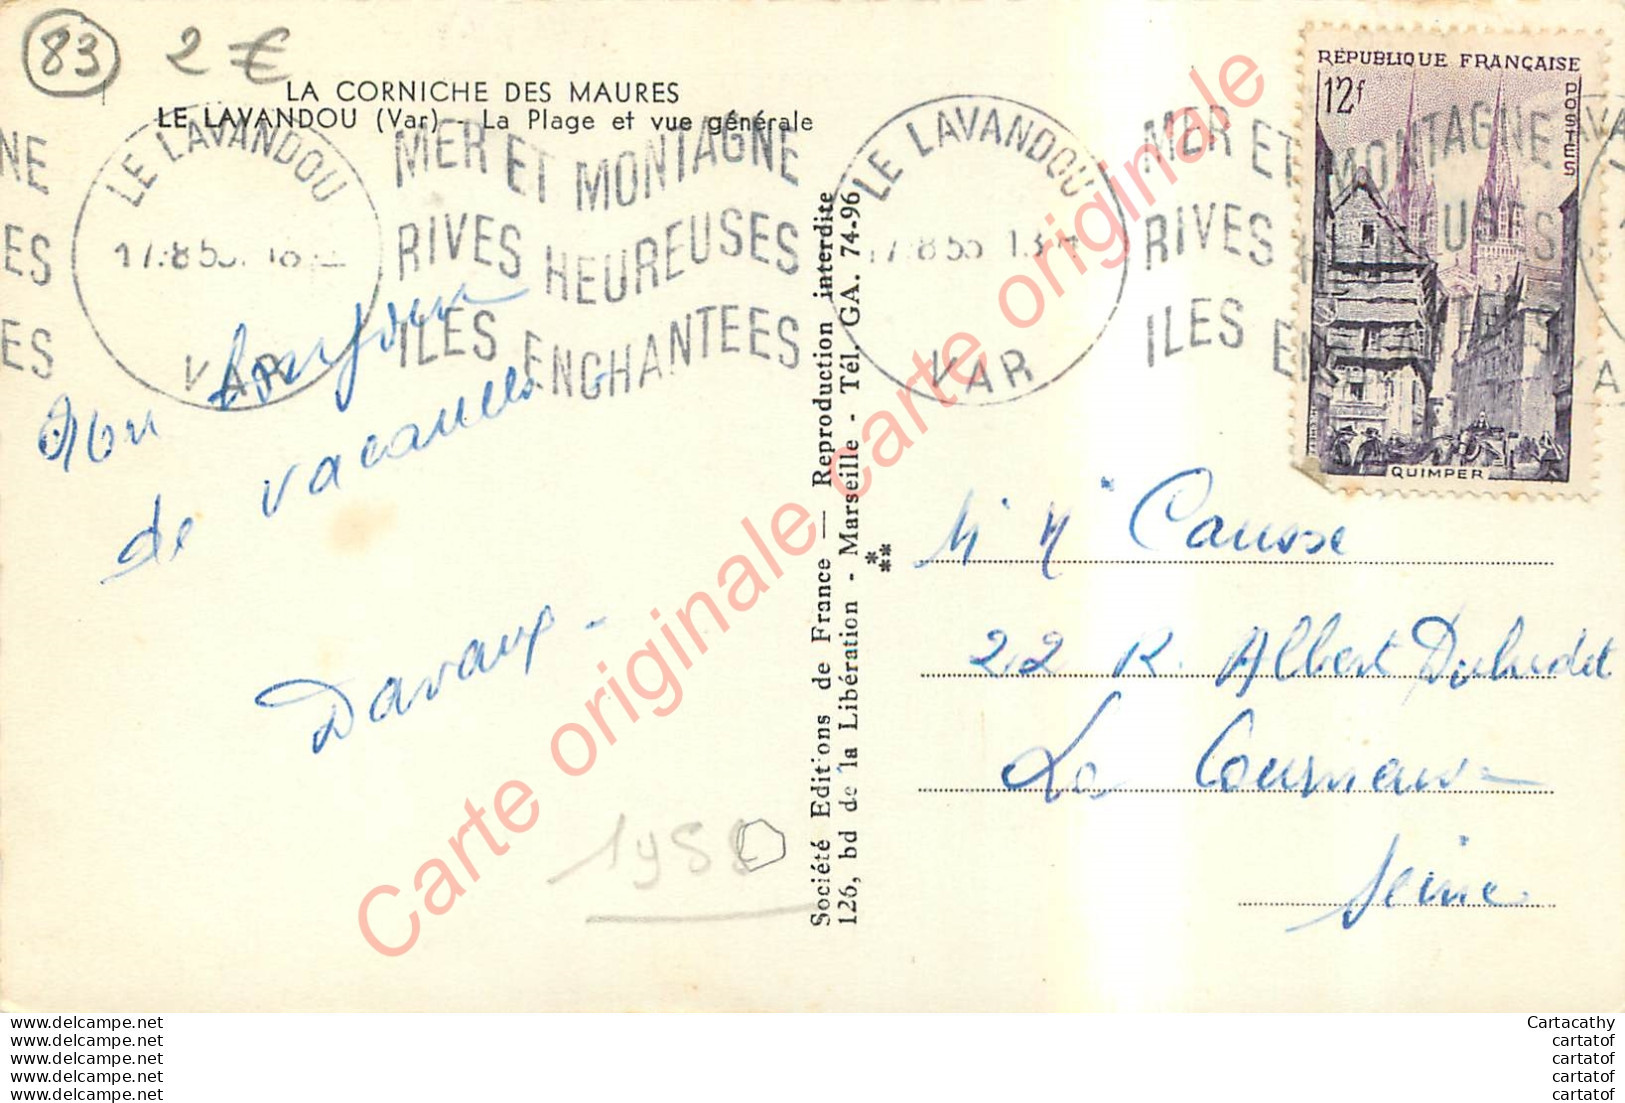 83
2 €
LA CORNICHE DES MAURES
LE LAVANDOU (Var) - La Plage et vue générale
LE LAVANDOU
VAR
MER ET MONTAGNE
RIVES HEUREUSES
ILES ENCHANTEES
LE LAVANDOU
17-8 55
VAR
MER ET MONTAGNE
RIVES HEUREUSES
ILES
RÉPUBLIQUE FRANÇAISE
12f
POSTES
QUIMPER
Mon bonjour
de vacances
Davaux -
Société Editions de France — Reproduction interdite
126, bd de la Libération - Marseille - Tél. GA. 74-96
M M Causse
22 R. Albert
La Courneuve
Seine
Carte originale carte originale
www.delcampe.net
www.delcampe.net
www.delcampe.net
www.delcampe.net
www.delcampe.net
Cartacathy
cartatof
cartatof
cartatof
cartatof